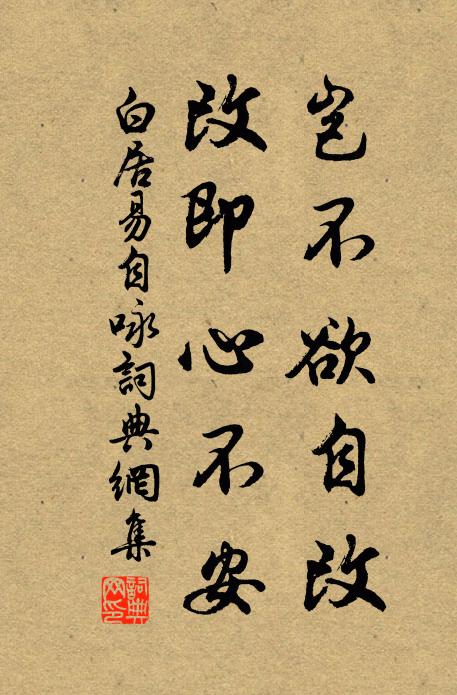 豈不欲自改
改即心不安
白居易自咏詞典網集
詞典
网印